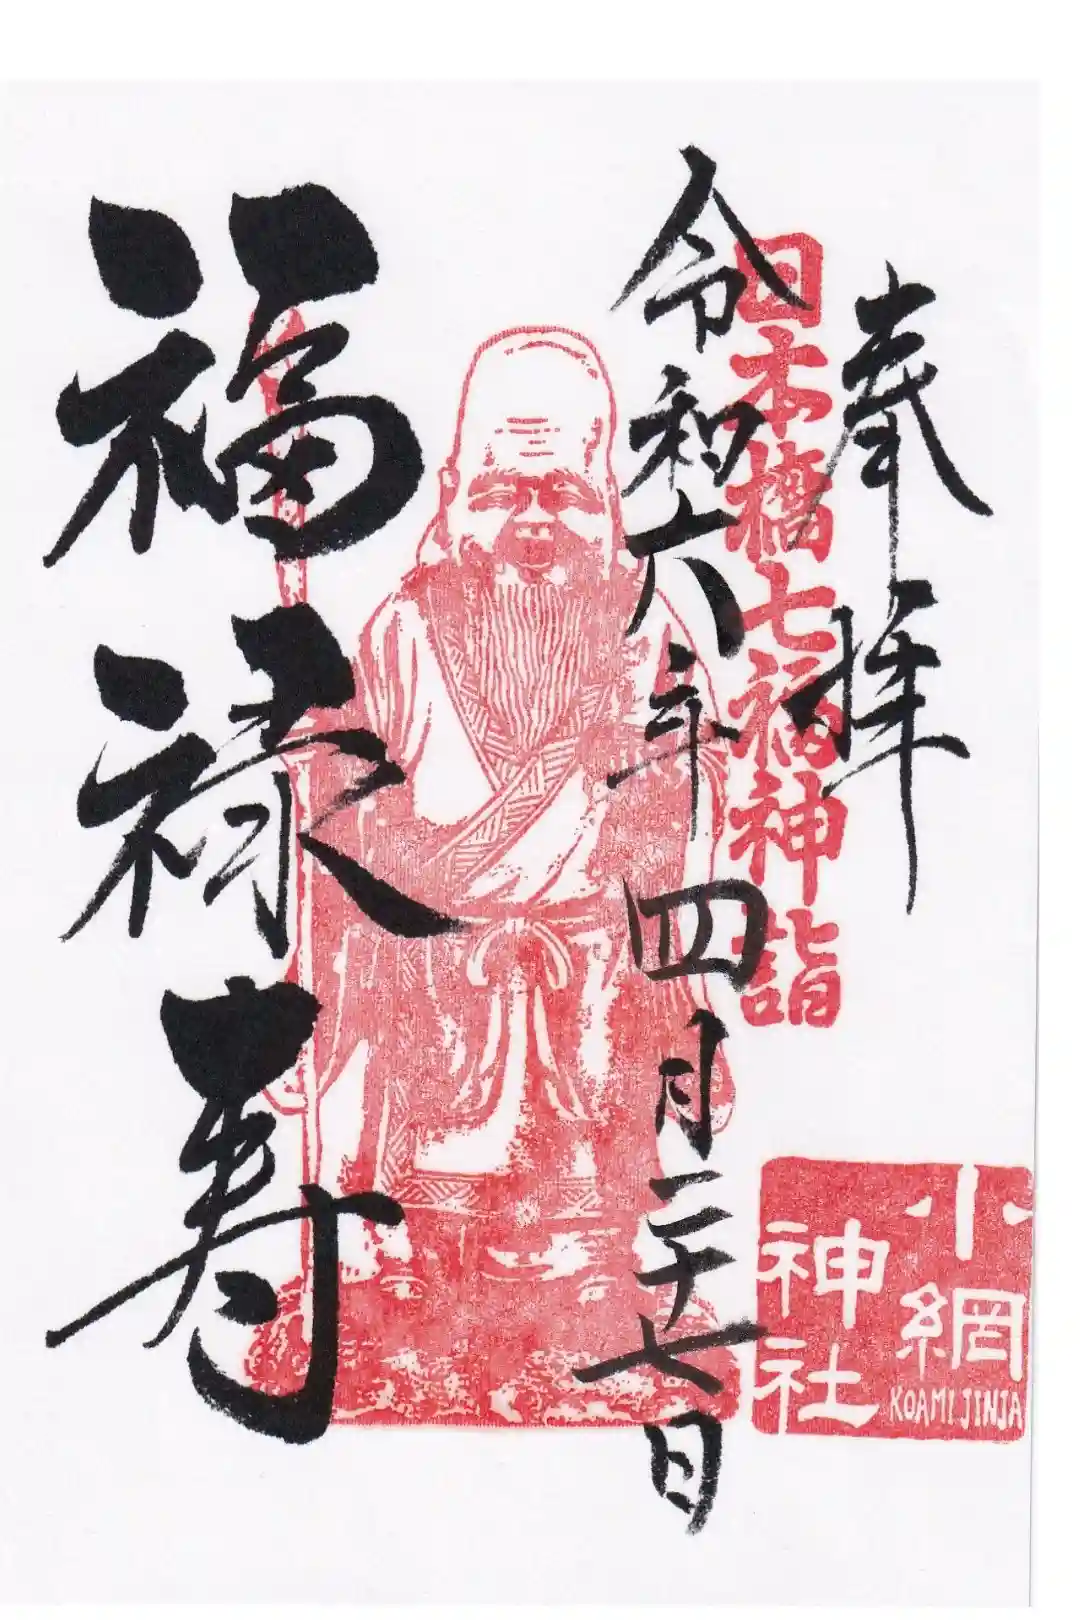 奉拝
日本橋七福神詣
令和六年四月二十七日
福禄寿
小網
神社
KOAMI JINJA